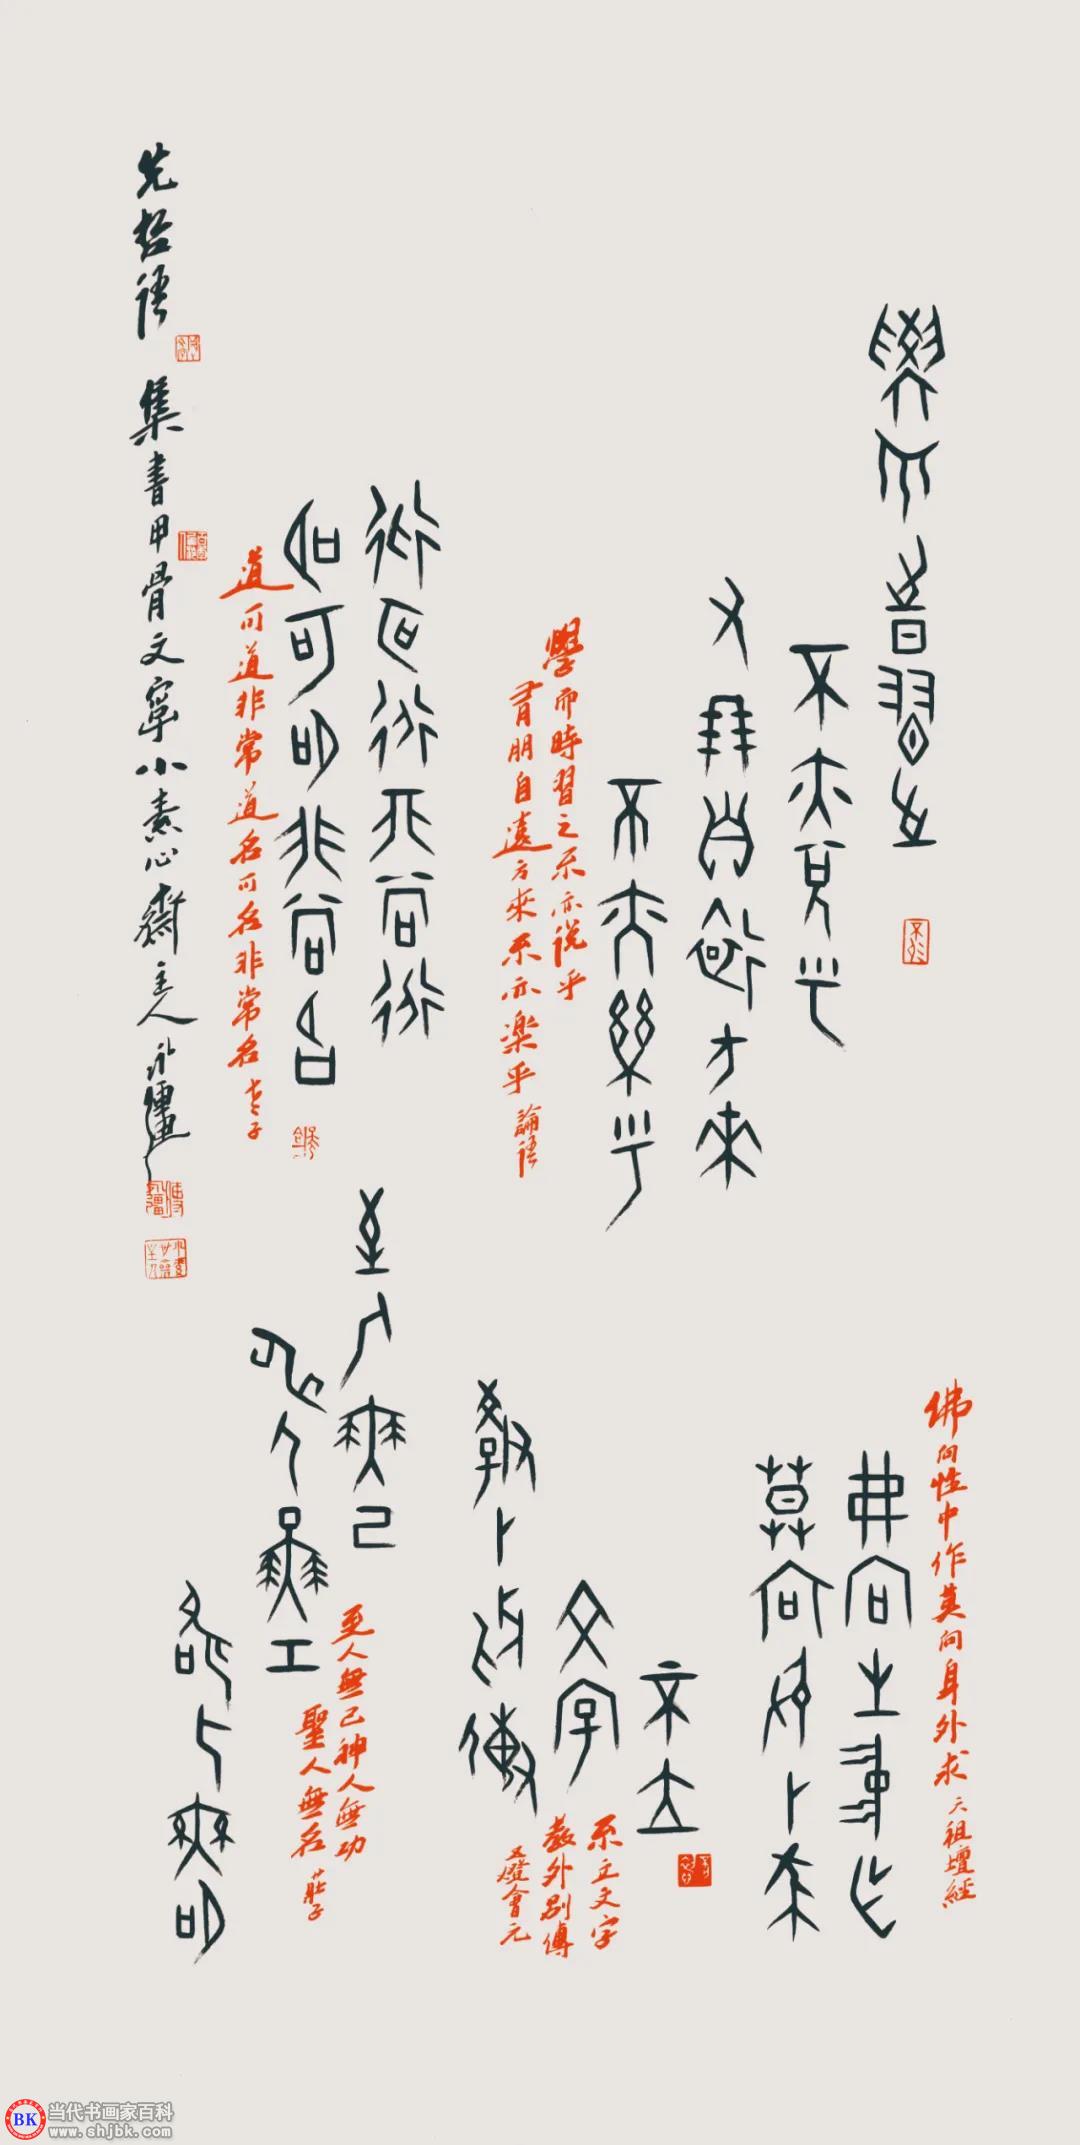 學而時習之
不亦說乎
又朋自遠方來
不亦樂乎
學而時習之不亦說乎
有朋自遠方來不亦樂乎 論語
道可道非常道
名可名非常名
道可道非常道名可名非常名 老子
佛向性中作莫向身外求 六祖壇經
弗向生中作
莫向身外求
不立
文字
教外別傳
不立文字
教外別傳
五燈會元
至人無己
神人無工
聖人無名
至人無己神人無功
聖人無名 莊子
先哲語
集書甲骨文寧小素心齋主人
BK 当代书画家百科
www.shjbk.com